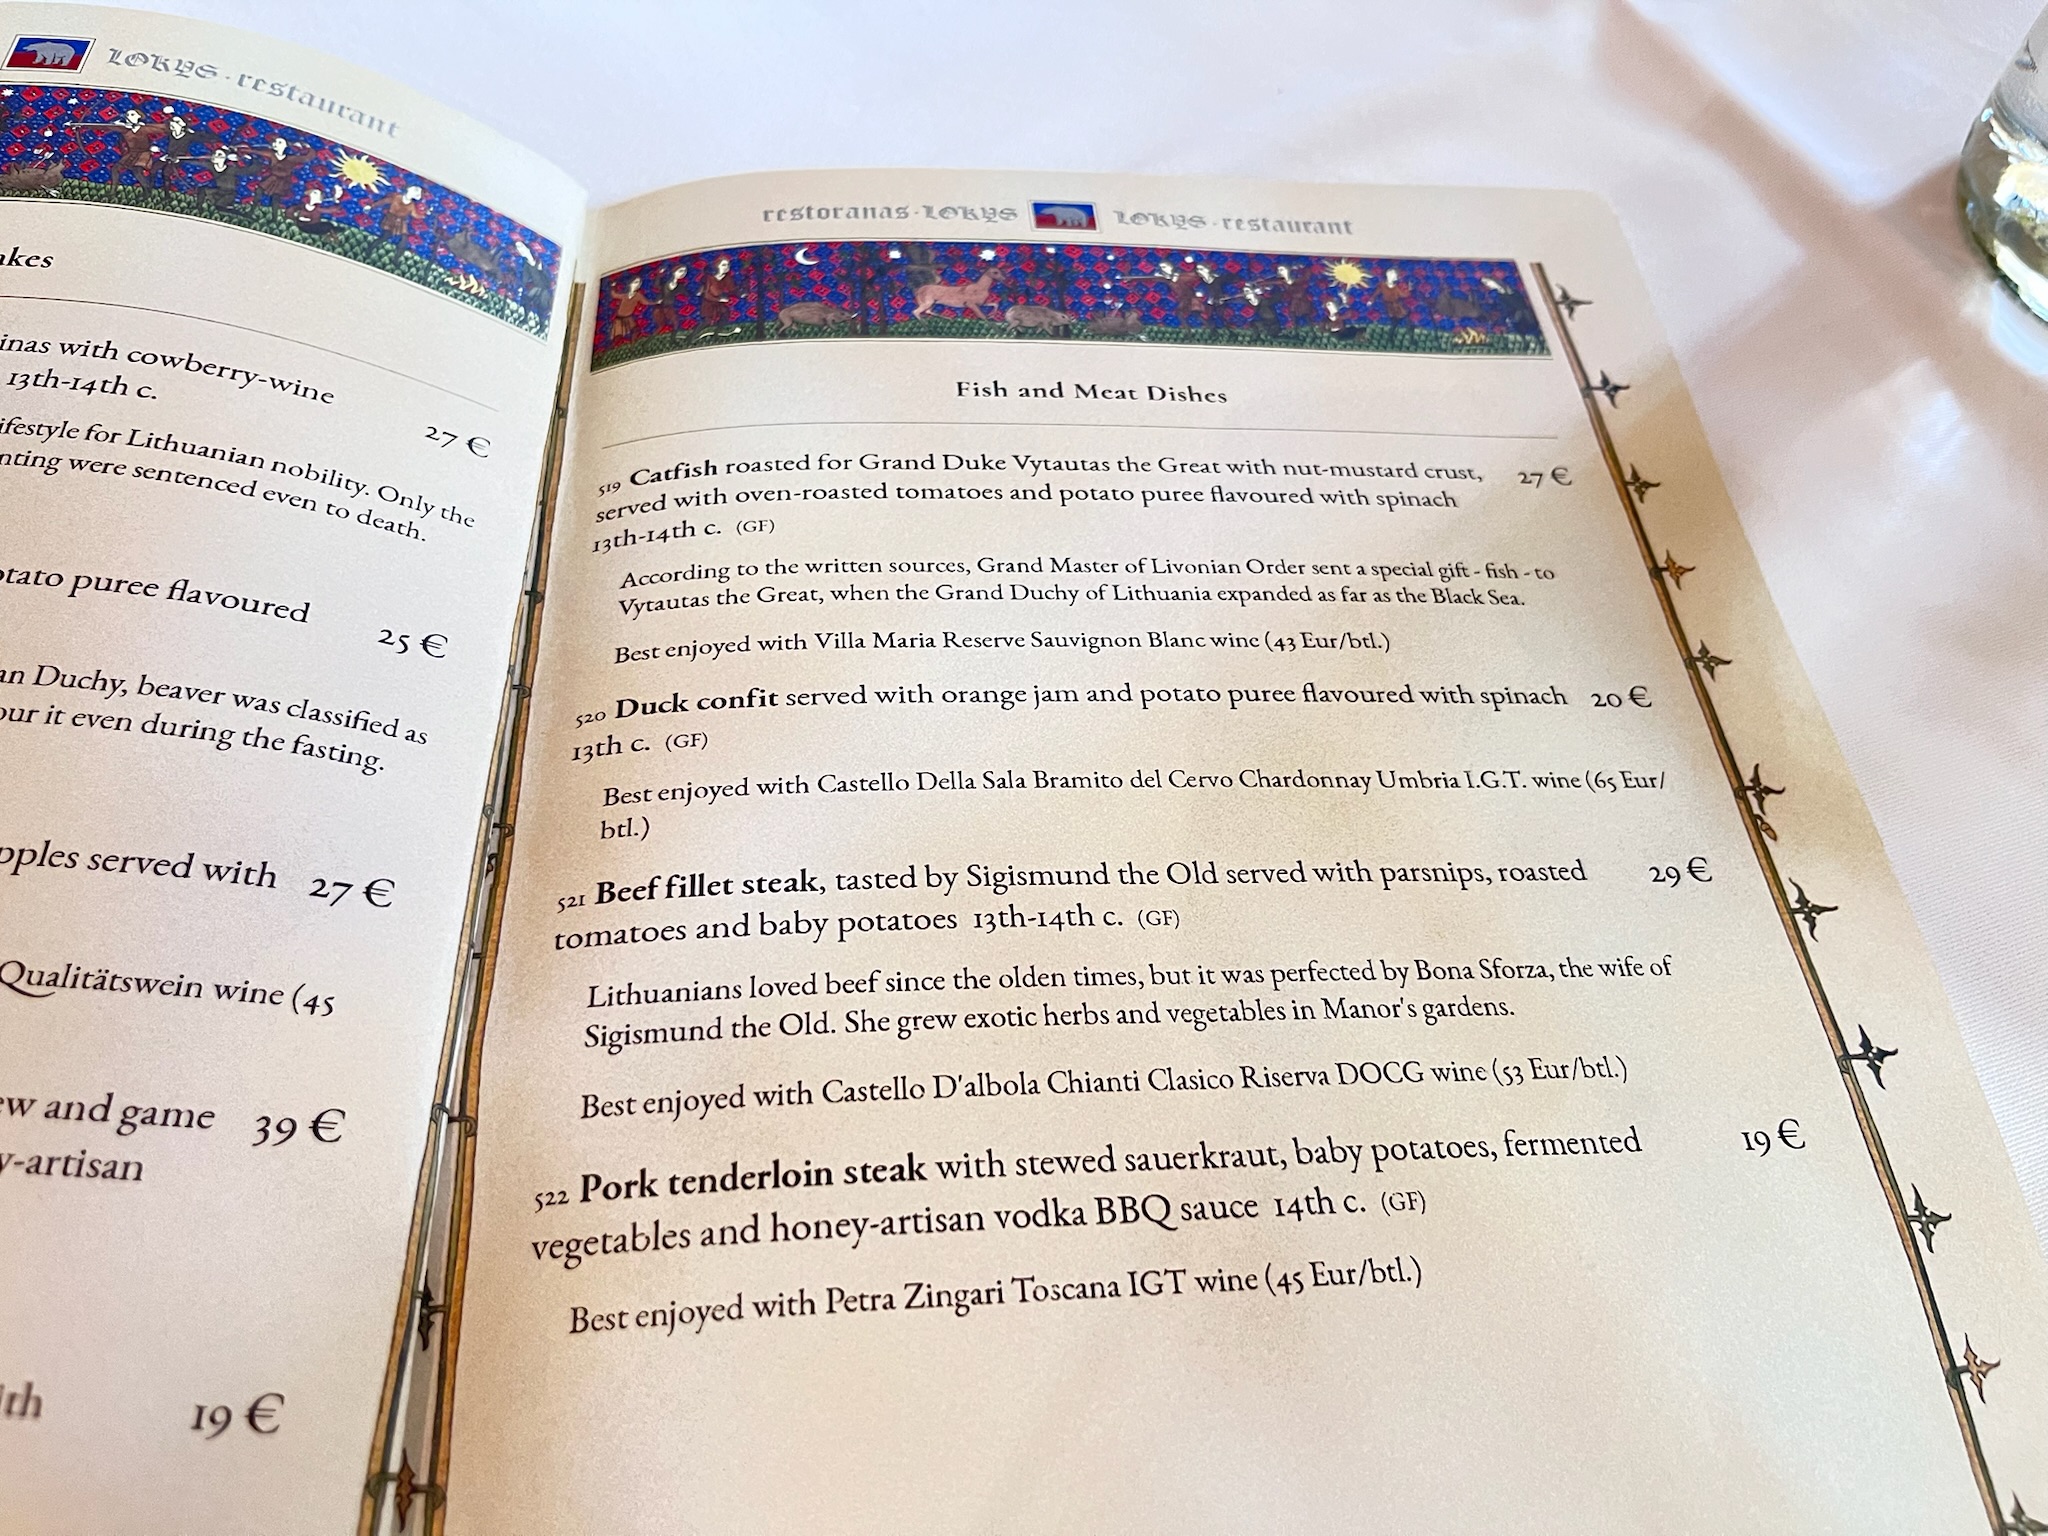 LOKYS · restaurant
inas with cowberry-wine
13th-14th c.
27 €
lifestyle for Lithuanian nobility. Only the
nting were sentenced even to death.
otato puree flavoured
25 €
an Duchy, beaver was classified as
our it even during the fasting.
pples served with 27 €
Qualitätswein wine (45
ew and game 39 €
y-artisan
ith 19 €
restoranas · LOKYS LOKYS · restaurant
Fish and Meat Dishes
519 Catfish roasted for Grand Duke Vytautas the Great with nut-mustard crust, 27 €
served with oven-roasted tomatoes and potato puree flavoured with spinach
13th-14th c. (GF)
According to the written sources, Grand Master of Livonian Order sent a special gift - fish - to
Vytautas the Great, when the Grand Duchy of Lithuania expanded as far as the Black Sea.
Best enjoyed with Villa Maria Reserve Sauvignon Blanc wine (43 Eur/btl.)
520 Duck confit served with orange jam and potato puree flavoured with spinach 20 €
13th c. (GF)
Best enjoyed with Castello Della Sala Bramito del Cervo Chardonnay Umbria I.G.T. wine (65 Eur/
btl.)
521 Beef fillet steak, tasted by Sigismund the Old served with parsnips, roasted 29 €
tomatoes and baby potatoes 13th-14th c. (GF)
Lithuanians loved beef since the olden times, but it was perfected by Bona Sforza, the wife of
Sigismund the Old. She grew exotic herbs and vegetables in Manor's gardens.
Best enjoyed with Castello D'albola Chianti Clasico Riserva DOCG wine (53 Eur/btl.)
522 Pork tenderloin steak with stewed sauerkraut, baby potatoes, fermented 19 €
vegetables and honey-artisan vodka BBQ sauce 14th c. (GF)
Best enjoyed with Petra Zingari Toscana IGT wine (45 Eur/btl.)